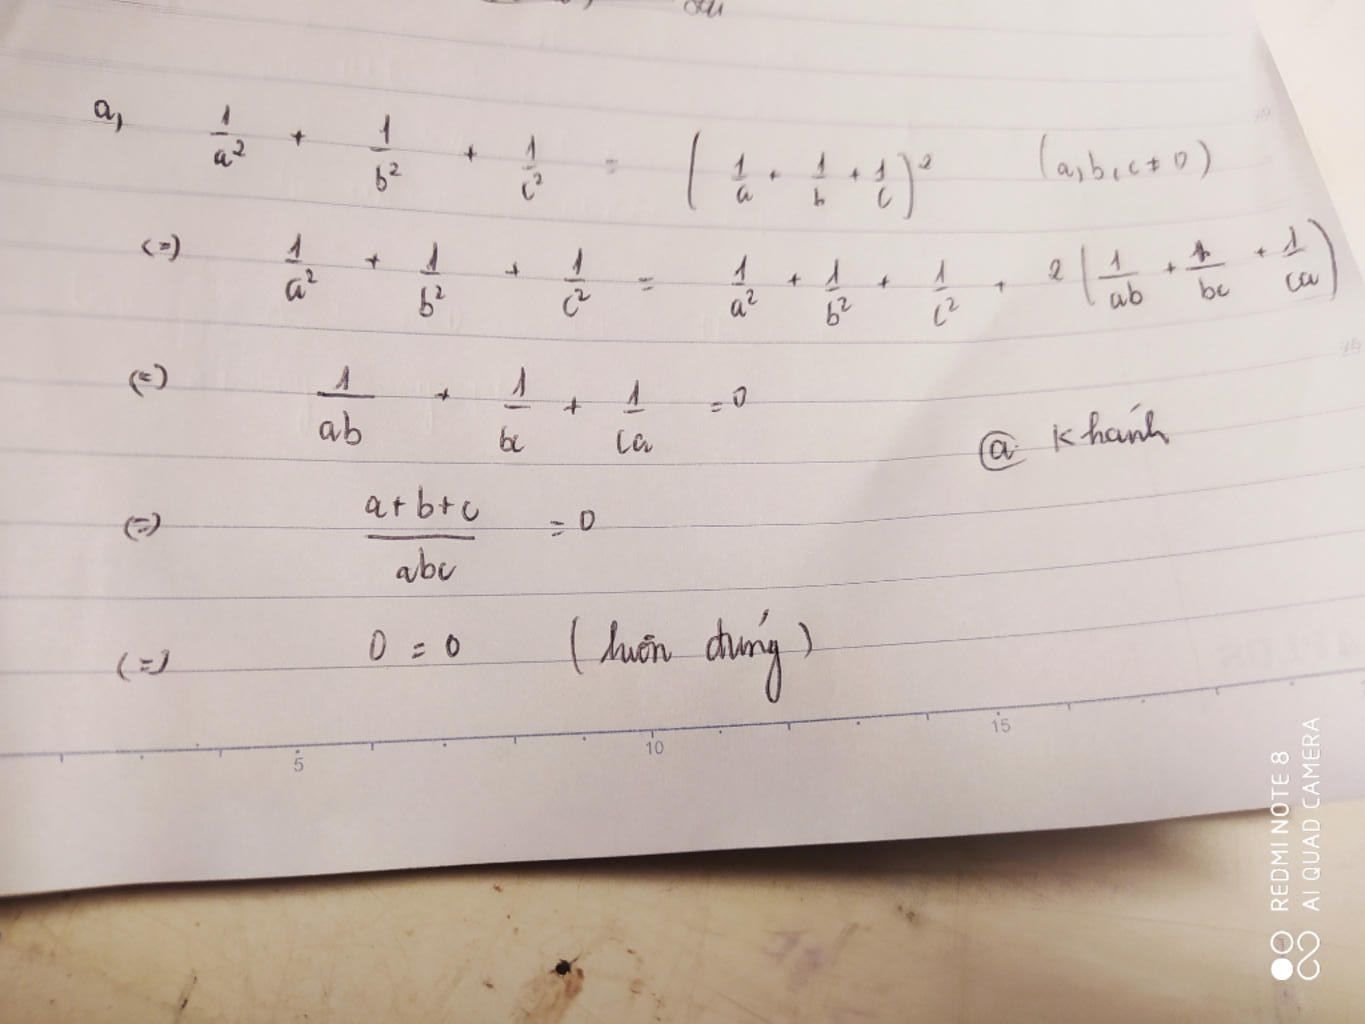 a, 1/a² + 1/b² + 1/c² = (1/a + 1/b + 1/c)² (a, b, c ≠ 0)
(=) 1/a² + 1/b² + 1/c² = 1/a² + 1/b² + 1/c² + 2(1/ab + 1/bc + 1/ca)
(=) 1/ab + 1/bc + 1/ca = 0
@ Khánh
(=) a+b+c/abc = 0
(=) 0 = 0 (luôn đúng)
5 10 15
REDMI NOTE 8
AI QUAD CAMERA